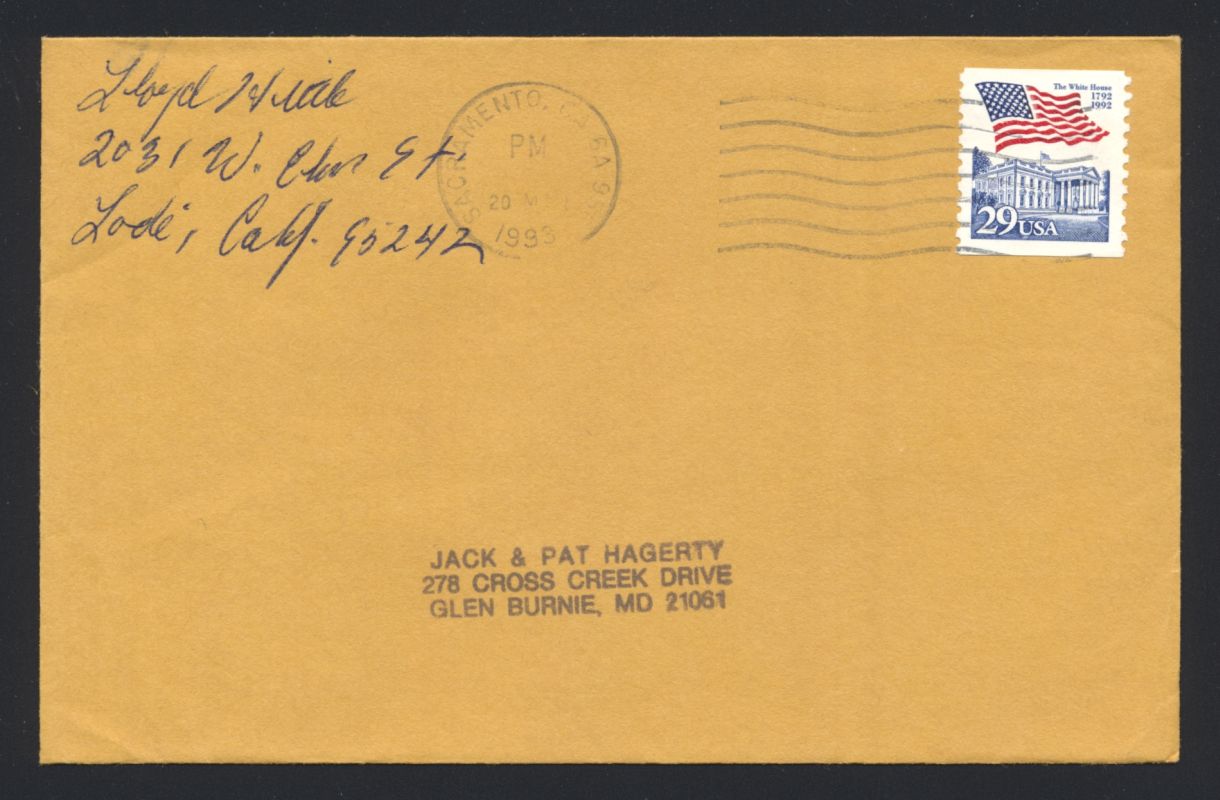 Lloyd
2031 W. Elm St
Lodi, Calif. 95242
SACRAMENTO, CA
PM
20
1993
The White House
1792
1992
29 USA
JACK & PAT HAGERTY
278 CROSS CREEK DRIVE
GLEN BURNIE, MD 21061